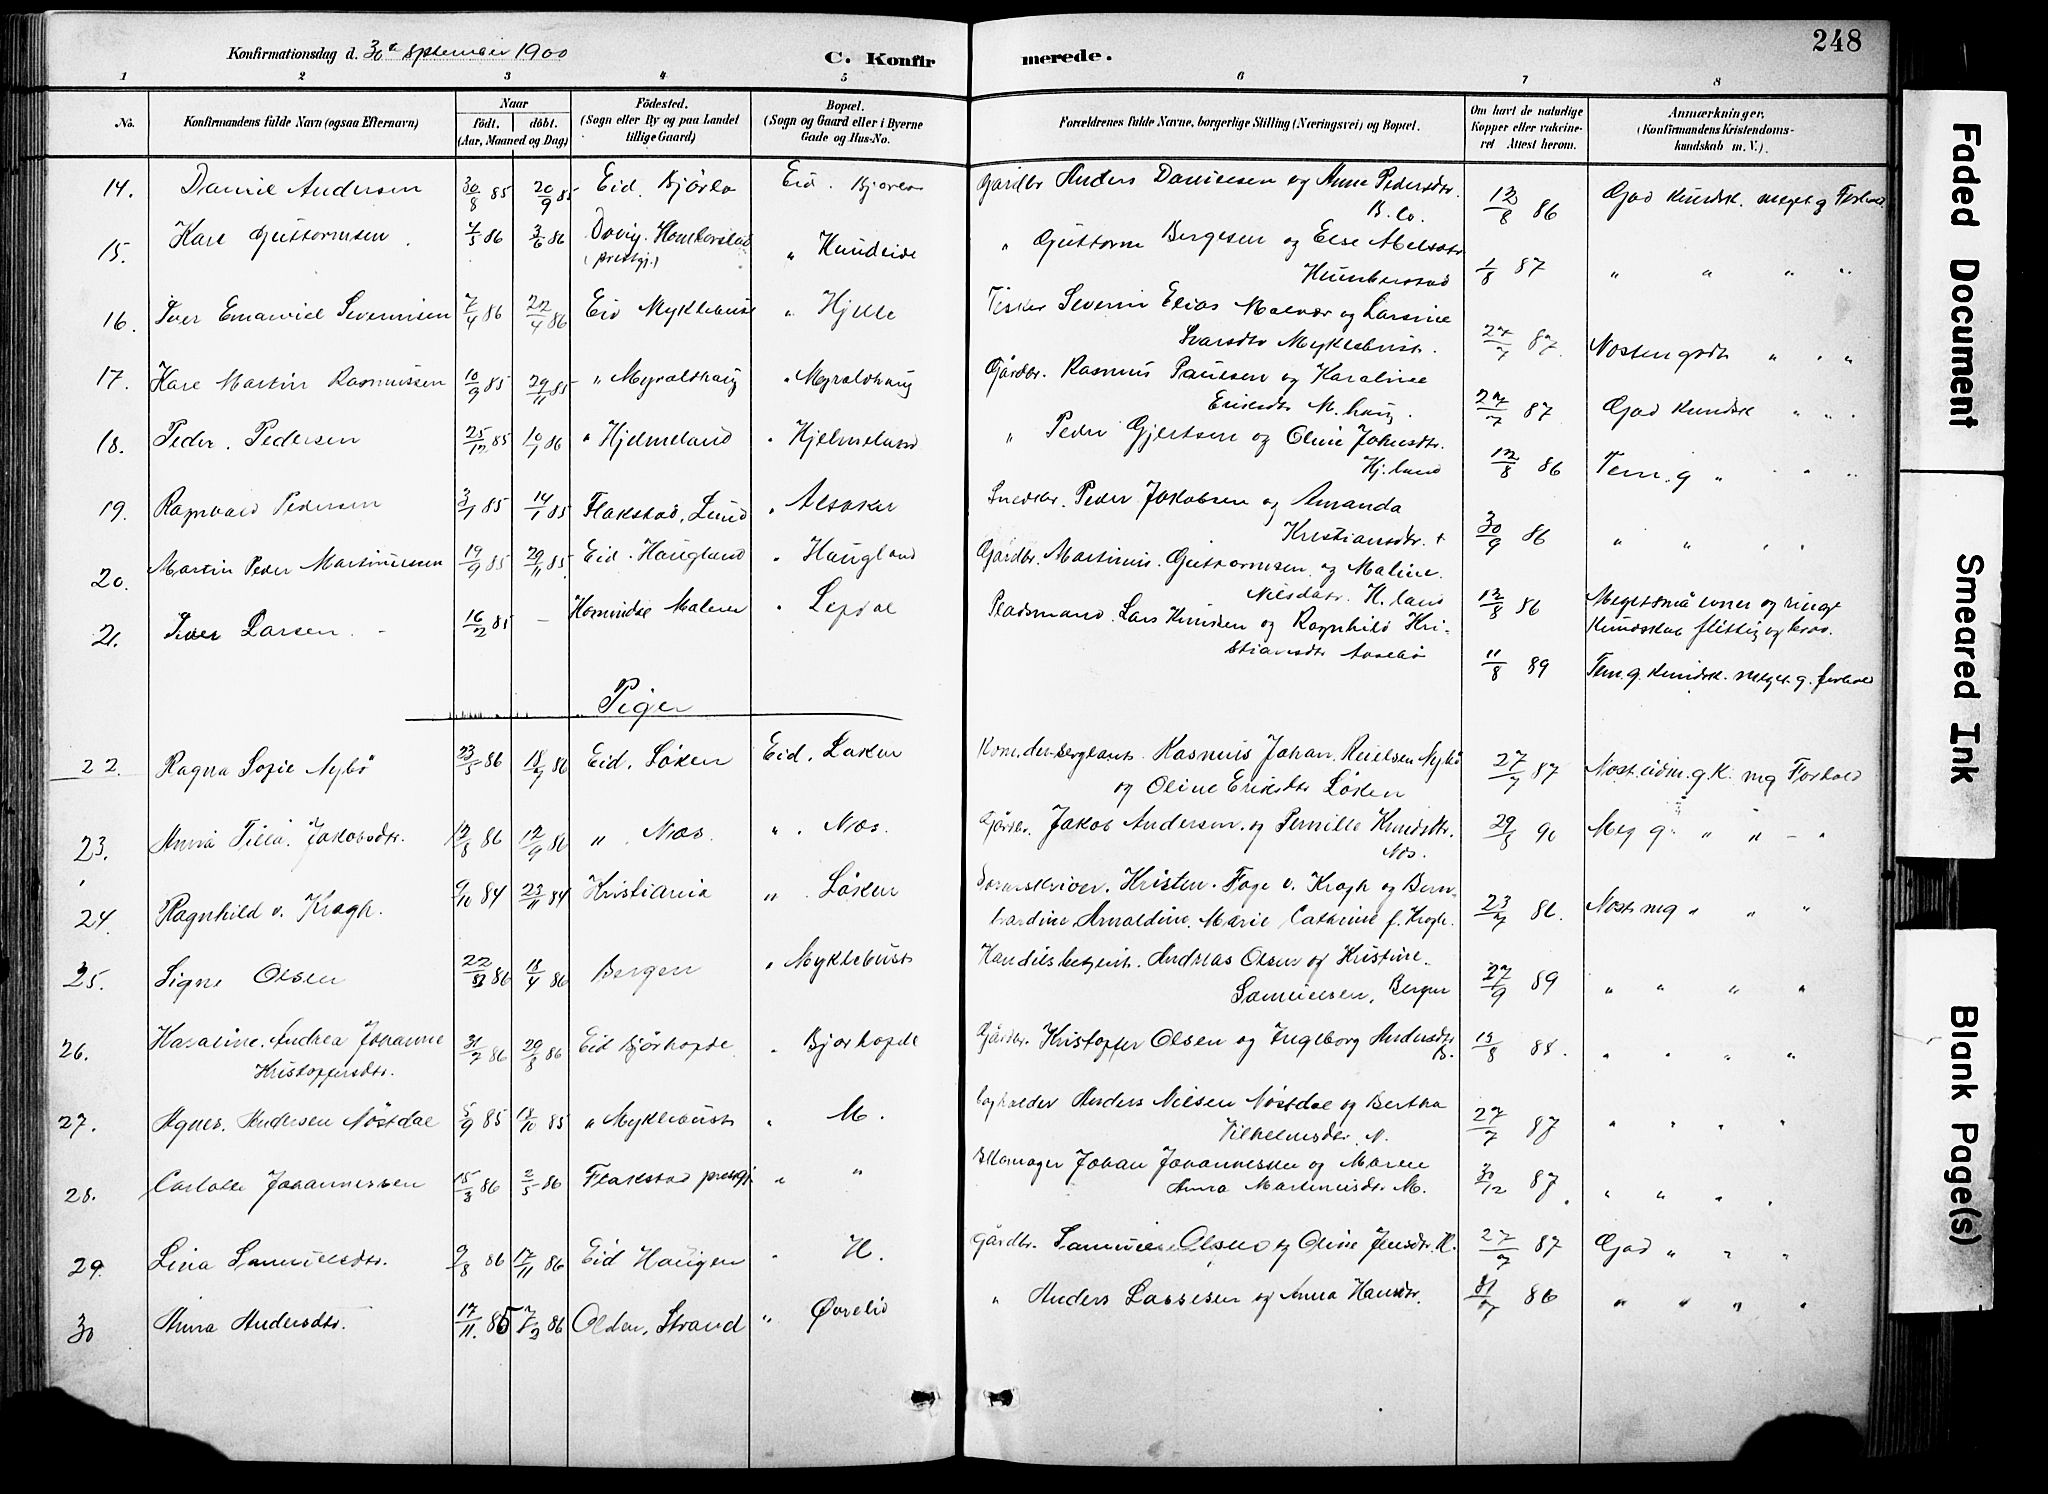 248
Konfirmationsdag d. 30te September 1900
C. Konfirmerede.
1 2 3 4 5 6 7 8
No.
Konfirmandens fulde Navn (ogsaa Efternavn)
Naar
födt. döbt.
(Aar, Maaned og Dag)
Födested.
(Sogn eller By og paa Landet
tillige Gaard)
Bopæl.
(Sogn og Gaard eller i Byerne
Gade og Hus-No.
Forældrenes fulde Navne, borgerlige Stilling (Næringsvei) og Bopæl.
Om havt de naturlige
Kopper eller vakcine-
ret Attest herom.
Anmærkninger.
(Konfirmandens Kristendoms-
kundskab m. V.).
14. Daniel Andersen 30/8 85 20/9 85 Eid. Bjørlo Eid. Bjorlo Gårdbr Anders Danielsen og Anne Pedersdtr. B.lo. 12/8 86 God Kundsk. meget g Forhold
15. Karl Guttormsen 4/5 86 3/6 86 Davig. (prestgj.) " Hundeide " Guttorm Bergesen og Else 1/8 87 " " " "
16. Iver Emanuel Severinsen 7/4 86 22/4 86 Eid Myklebust " Hjelle Fisker Severin Elias og Larsine Ivarsdtr Myklebust. 27/7 87. Nosten godt " " "
17. Karl Martin Rasmussen 10/9 85 29/11 85 " Myroldhaug " Myroldhaug Gårdbr. Rasmus Paulsen og Karoline Eriksdtr M.haug. 27/7 87 God Kundsk " " "
18. Peder. Pedersen 25/12 85 10/1 86 " Hjelmeland " Hjelmeland " Peder Gjertsen og Oline Johnsdtr. Hj.land 12/8 86 Tem. g " " " "
19. Ragnvald Pedersen 3/1 85 14/1 85 Flakstad, Lund " Alsaker Snedker Peder Jakobsen og Amanda Kristiansdtr. + 30/9 86 " " " "
20. Martin Peder Martinussen 19/9 85 29/11 85 Eid. Haugland " Haugland Gårdbr. Martinus. Guttormsen og Maline. Nilsdtr. H.land 12/8 86 Meget små evner og ringe
Kundskab flittig og brav.
21. Peder Larsen. - 16/2 85 - Hornindal " Lepdal Pladsmand. Lars Knudsen og Ragnhild Kristiansdtr 11/8 89 Tem. g. Kundsk. meget g. forhold
Piger
22. Ragna Sofie Nybö 23/5 86 18/7 86 Eid. Løken Eid. Løken Rasmus Johan. Nybö og Oline Eriksdtr Løken 27/7 87 Nost. udm. g. K. mg Forhold
23. Anna Jakobsdtr. 12/8 86 12/9 86 " Næs. " . Næs. Gårdbr. Jakob Andersen. og Pernille Knudsdtr. Næs. 29/5 90 Meg g. " " - "
24. Ragnhild v. Krogh. 9/10 84 23/11 84 Kristiania " . Løken Sorenskriver. Kristen. Fage v. Krogh og Bernhardine Arnoldine. Marie Cathrine f. Krogh. 23/7 86. Nost mg " " "
25. Signe Olsen 22/2 86 18/4 86 Bergen " Myklebust Handelsbetjent. Andreas Olsen og Kristine. Samuelsen, Bergen 27/9 89 " " " "
26. Karoline. Andrea Johanne
Kristoffersdtr. 31/7 86 29/8 86 Eid Bjørhopde. " Bjørhopde Gårdbr. Kristoffer Olsen og Ingeborg Andersdtr B. 13/8 88. " " " "
27. Agnes. Andersen Nøstdal 5/9 85 18/10 85 " Myklebust " M. Anders Nilsen Nøstdal og Bertha Vilhelmsdtr. N. 27/7 87 " " " "
28. Carlotte Johannessen 15/3 86 2/5 86 Flakstad prestgj " " Skomager Johan Johannessen og Maren Anna Martinusdtr. M. 31/12 87. " " " "
29. Lina Samuelsdtr. 9/8 86 17/11 86 Eid Haugen " H. Gårdbr. Samuel Olsen og Oline Jensdtr. H. 27/7 87 God " " "
30 Anna Andersdtr. 17/11. 85 7/2 86 Olden, Strand " Øvrelid " Anders Lassesen og Anna Hansdtr. 31/7 86 " " " "
Faded Document
Smeared Ink
Blank Page(s)